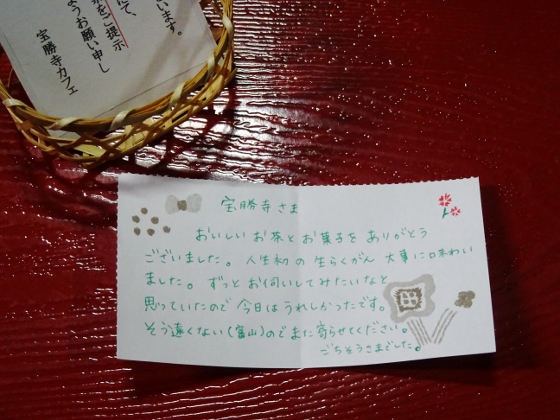 います。
にて、
をご提示
ようお願い申し
宝勝寺カフェ
宝勝寺さま
おいしいお茶とお菓子をありがとう
ございました。人生初の生らくがん 大事に味わい
ました。ずっとお伺いしてみたいなと
思っていたので今日はうれしかったです。
そう遠くない(富山)のでまた寄らせてください。
ごちそうさまでした。